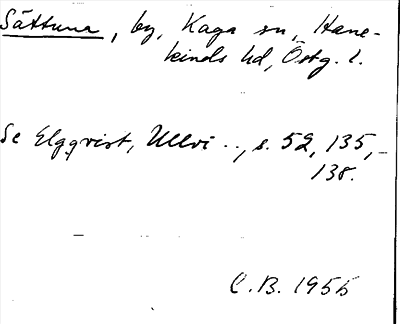 Sättuna, by, Kaga sn, Hane-
kinds hd, Östg. l.
Se Elgqvist, Ullvi .., s. 52, 135,-
138.
C.B. 1955